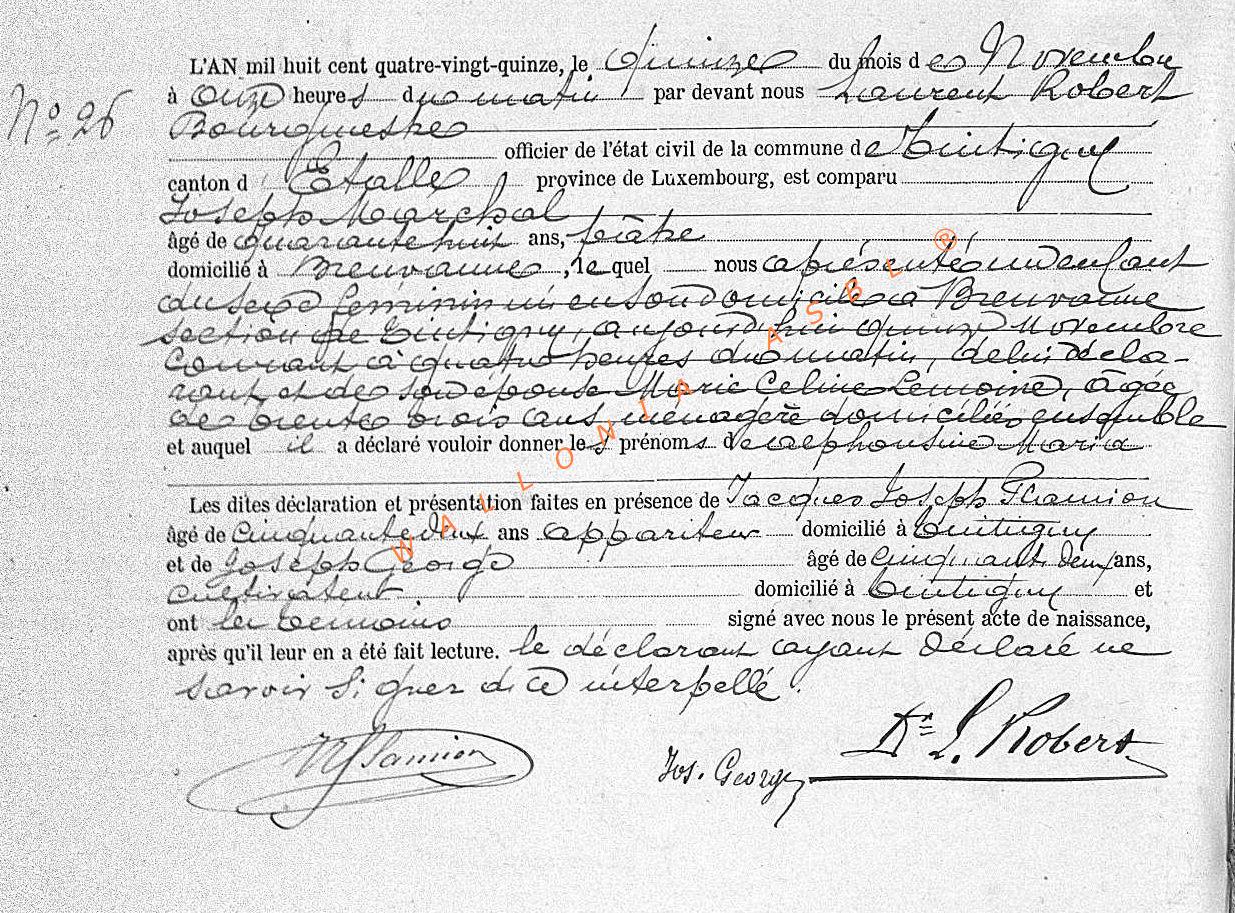 L'AN mil huit cent quatre-vingt-quinze, le quinze du mois de Novembre
No 26
à Onze heures du matin par devant nous Laurent Robert
Bourgmestre
officier de l'état civil de la commune de Tintigny
canton d'Etalle, province de Luxembourg, est comparu
Joseph Maréchal
âgé de quarante huit ans, pâtre
domicilié à Breuvanne, le quel nous a présenté un enfant
du sexe féminin né en son domicile à Breuvanne
section de Tintigny, aujourd'hui quinze Novembre
courant à quatre heures du matin, de lui décla-
rant et de son épouse Marie Celine Lemoine, âgée
de trente trois ans ménagère domiciliés ensemble
et auquel il a déclaré vouloir donner les prénoms de Alphonsine Maria
Les dites déclaration et présentation faites en présence de Jacques Joseph
âgé de cinquante deux ans appariteur domicilié à Tintigny
et de Joseph George âgé de cinquante deux ans,
cultivateur domicilié à Tintigny et
ont les témoins signé avec nous le présent acte de naissance,
après qu'il leur en a été fait lecture. le déclarant ayant déclaré ne
savoir signer de ce interpellé.
Dr L. Robert
Jos. George
WALLONIA ASBL ®